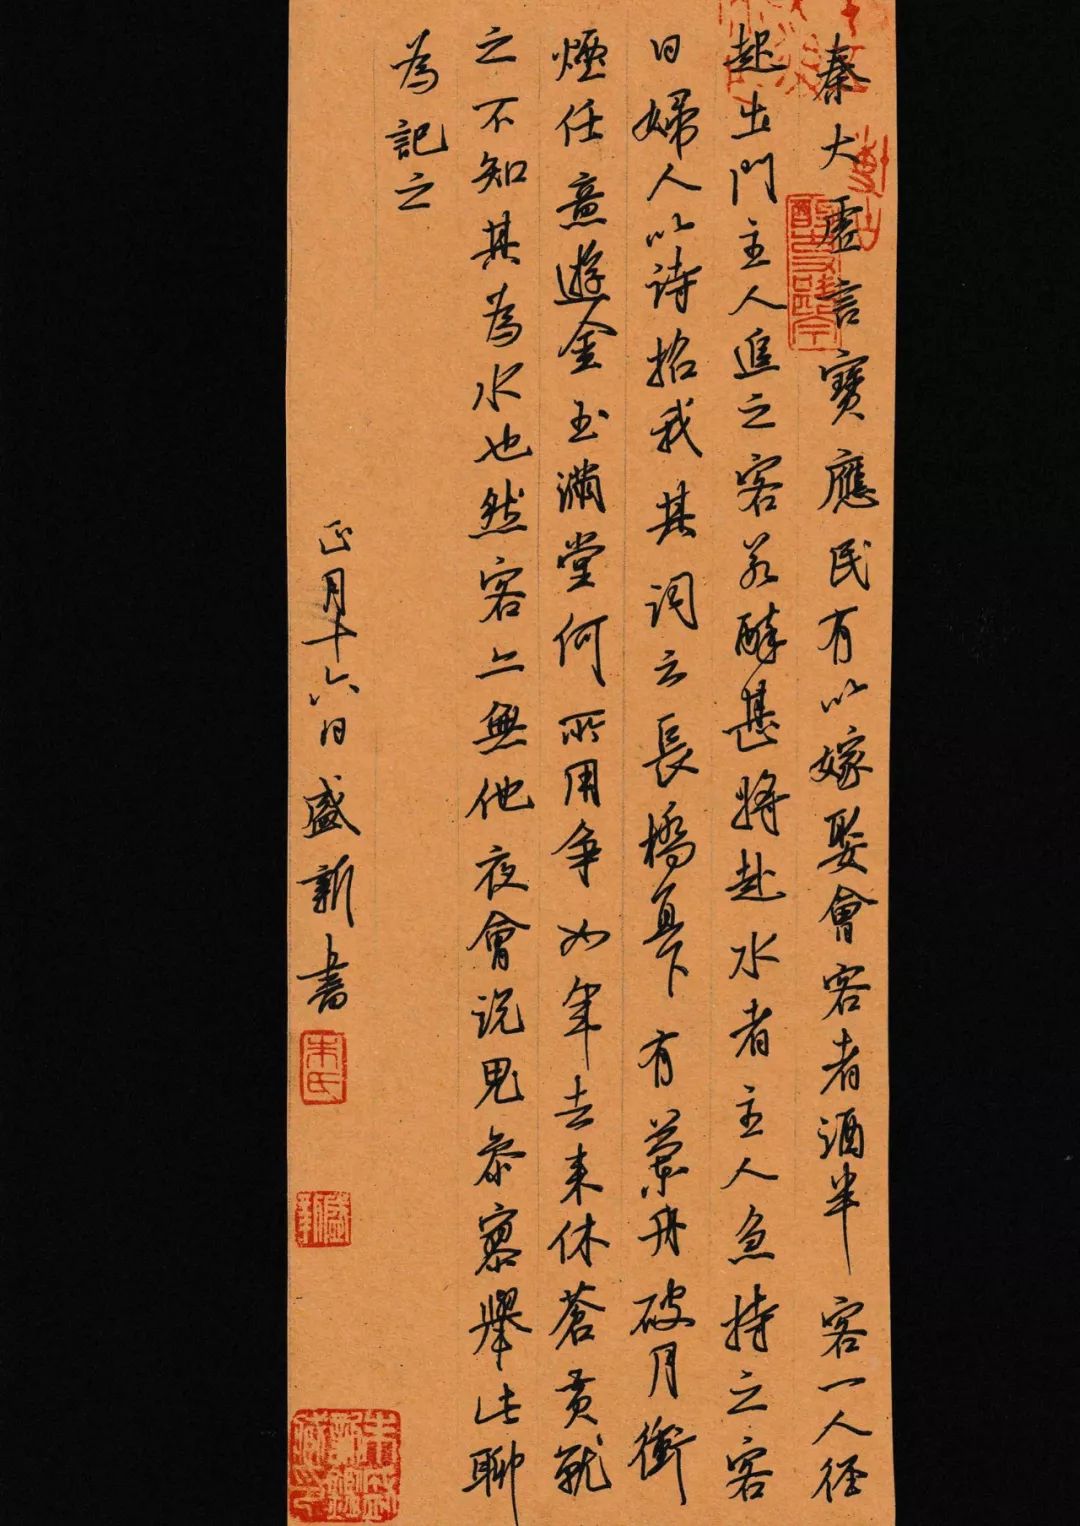 秦太虛言寶應民有以嫁娶會客者酒半客一人徑
起出門主人追之客若醉甚將赴水者主人急持之客
曰婦人以詩招我其詞云長橋直下有蘭舟破月衝
煙任意遊金玉滿堂何所用爭如年去來休蒼黃就
之不知其為水也然客亦無他夜會說鬼參寥舉此聊
為記之
正月十六日盛新書
朱氏